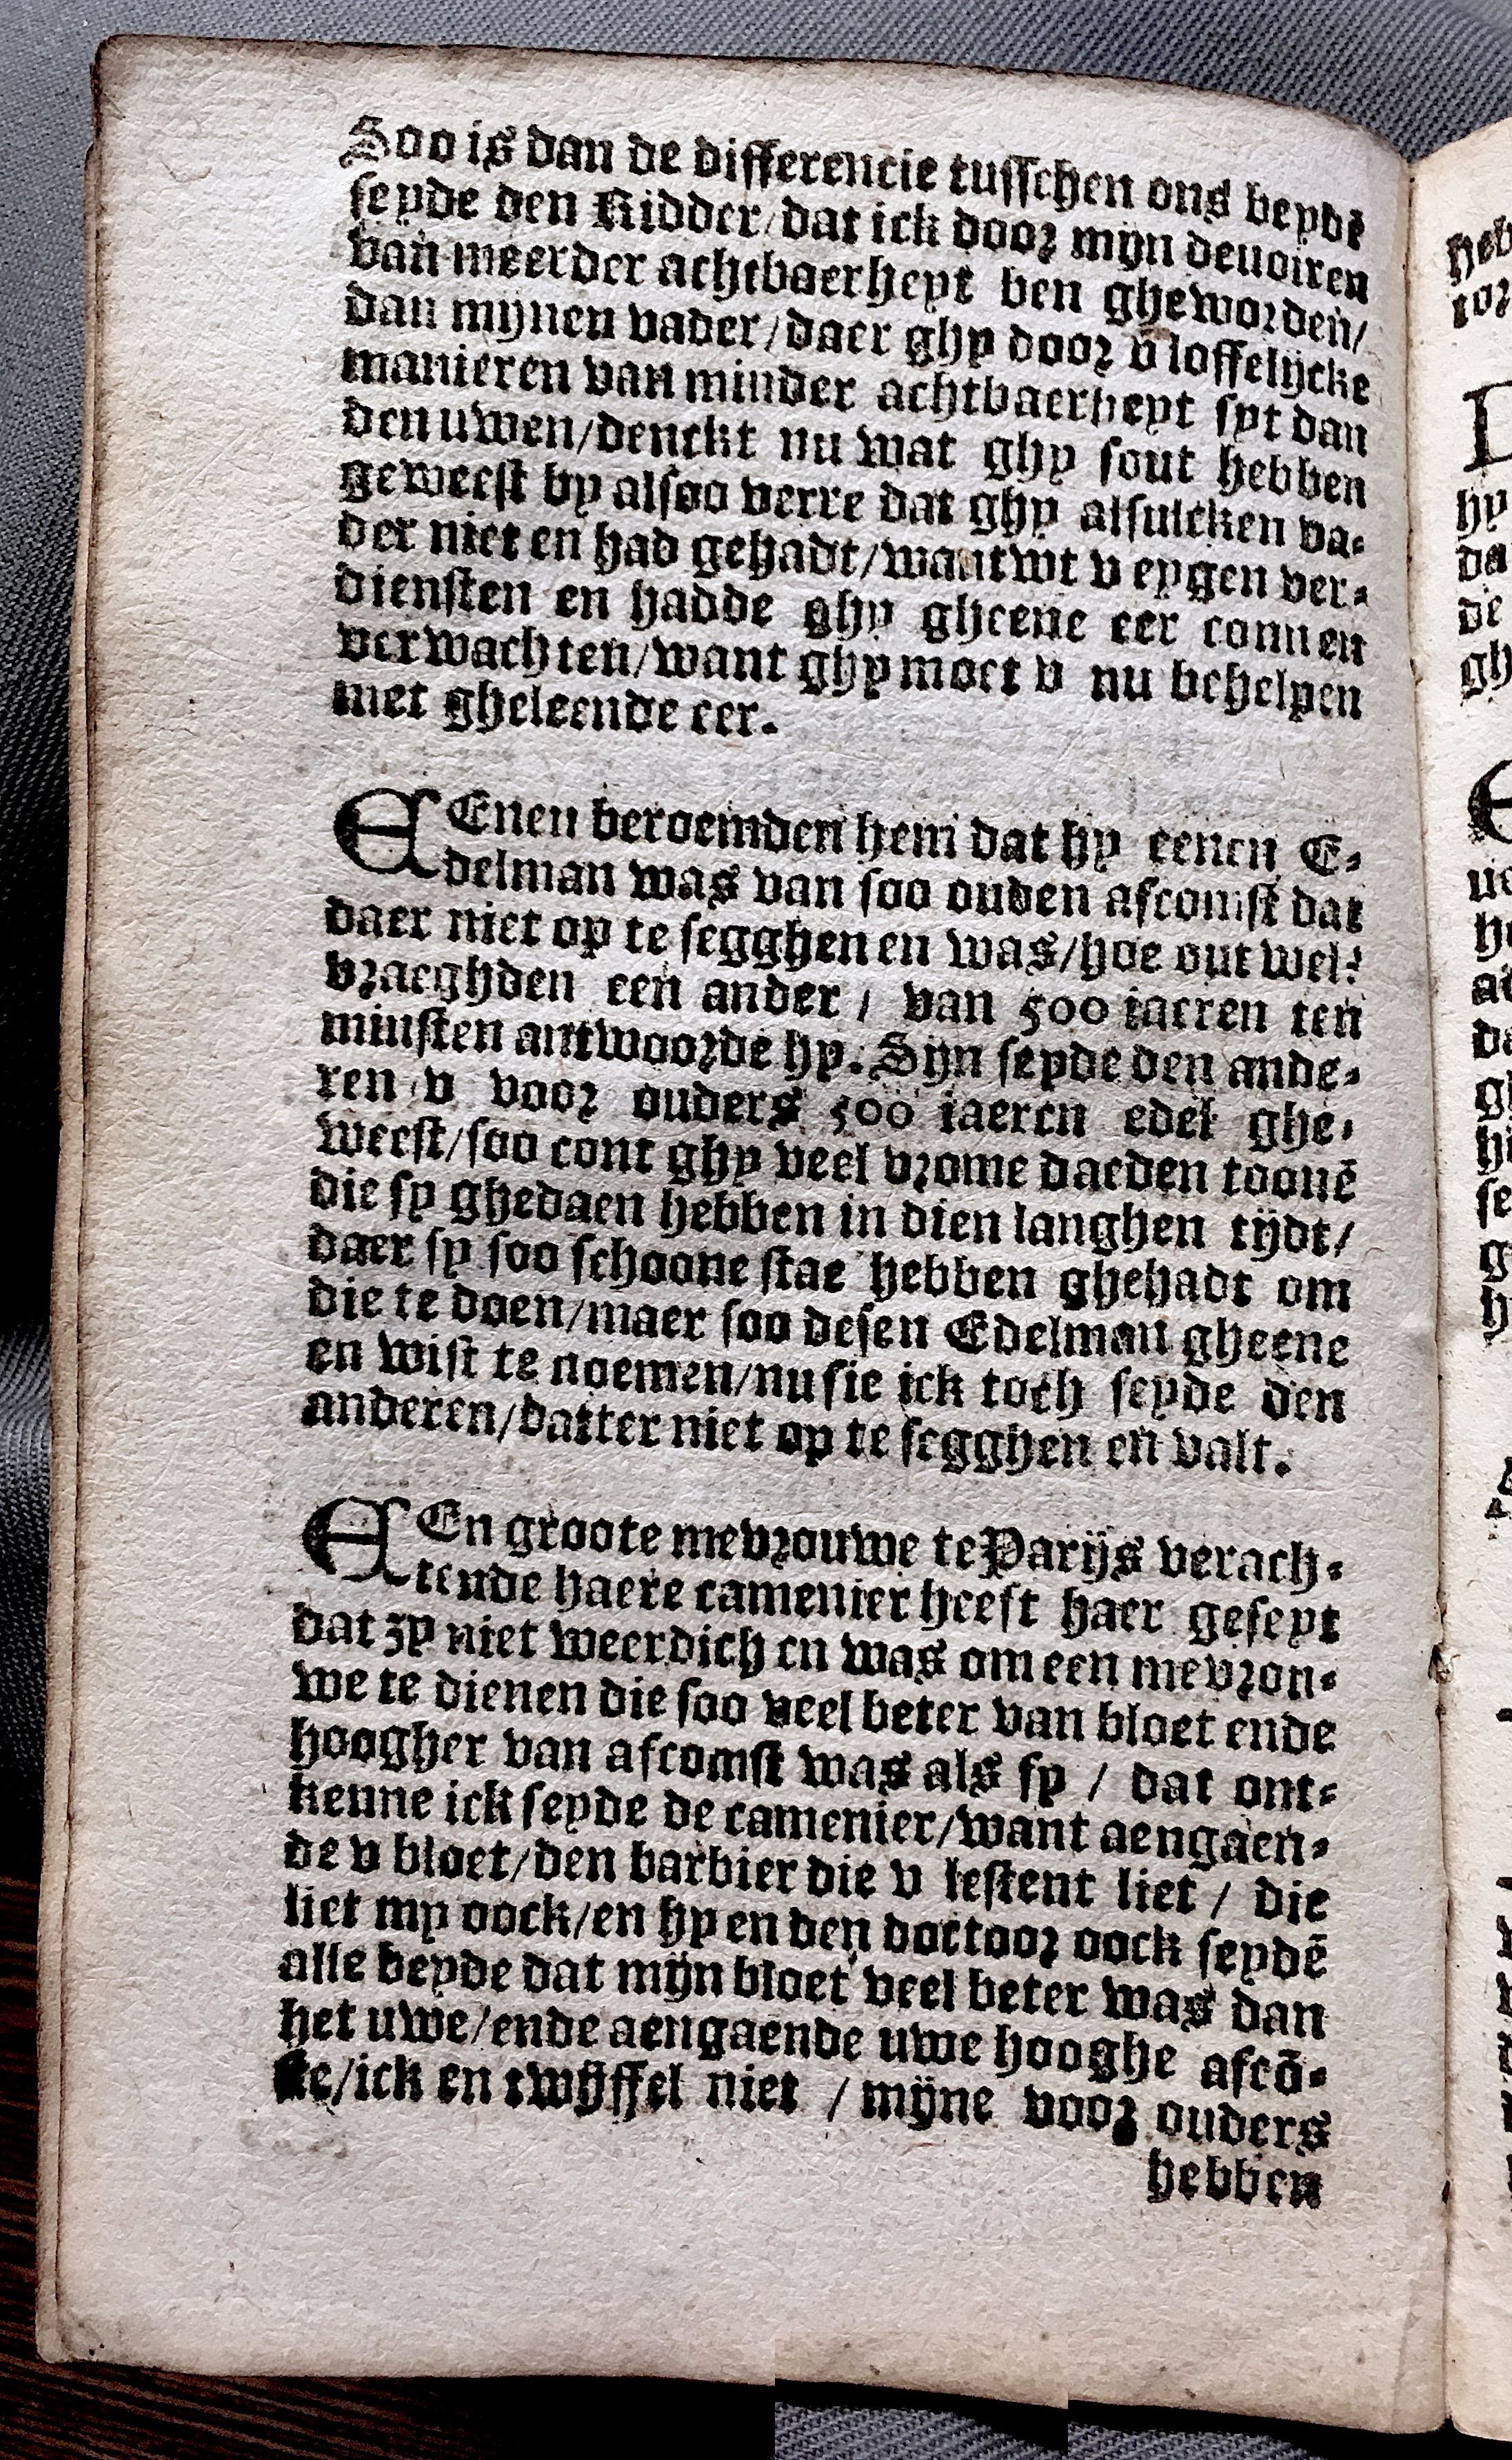 Soo is dan de differencie tusschen ons beydẽ
seyde den Ridder/dat ick door mijn deuoiren
van meerder achtbaerheyt ben gheworden/
dan mijnen vader/daer ghy door v loffelijcke
manieren van minder achtbaerheyt syt dan
den uwen/denckt nu wat ghy sout hebben
geweest by alsoo verre dat ghy alsulcken va-
der niet en had gehadt/want wt v eygen ver-
diensten en hadde ghy gheene eer connen
verwachten/want ghy moet v nu behelpen
met gheleende eer.
EEnen beroemden hem dat hy eenen E-
delman was van soo ouden afcomst dat
daer niet op te segghen en was/hoe out wel?
vraeghden een ander / van 500 iaeren ten
minsten antwoorde hy. Sijn seyde den ande-
ren v voor ouders 500 iaeren edel ghe-
weest/soo cont ghy veel vrome daeden toonẽ
die sy ghedaen hebben in dien langhen tijdt/
daer sy soo schoone stae hebben ghehadt om
die te doen/maer soo desen Edelman gheene
en wist te noemen/nu sie ick toch seyde den
anderen/datter niet op te segghen en valt.
EEn groote mevrouwe te Parijs verach-
tende haere camenier heeft haer geseyt
dat zy niet weerdich en was om een mevron-
we te dienen die soo veel beter van bloet ende
hoogher van afcomst was als sy / dat ont-
kenne ick seyde de camenier/want aengaen-
de v bloet/den barbier die v lestent liet / die
liet my oock/en hy en den doctoor oock seydẽ
alle beyde dat mijn bloet veel beter was dan
het uwe/ende aengaende uwe hooghe afcõ-
ste/ick en twijffel niet / mijne voor ouders
hebben